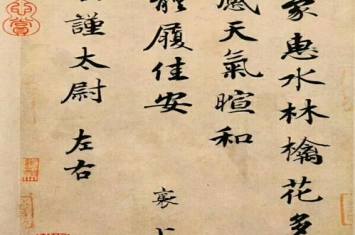 蒙惠水林檎花多
感天氣暄和
體履佳安 襄上
謹太尉 左右